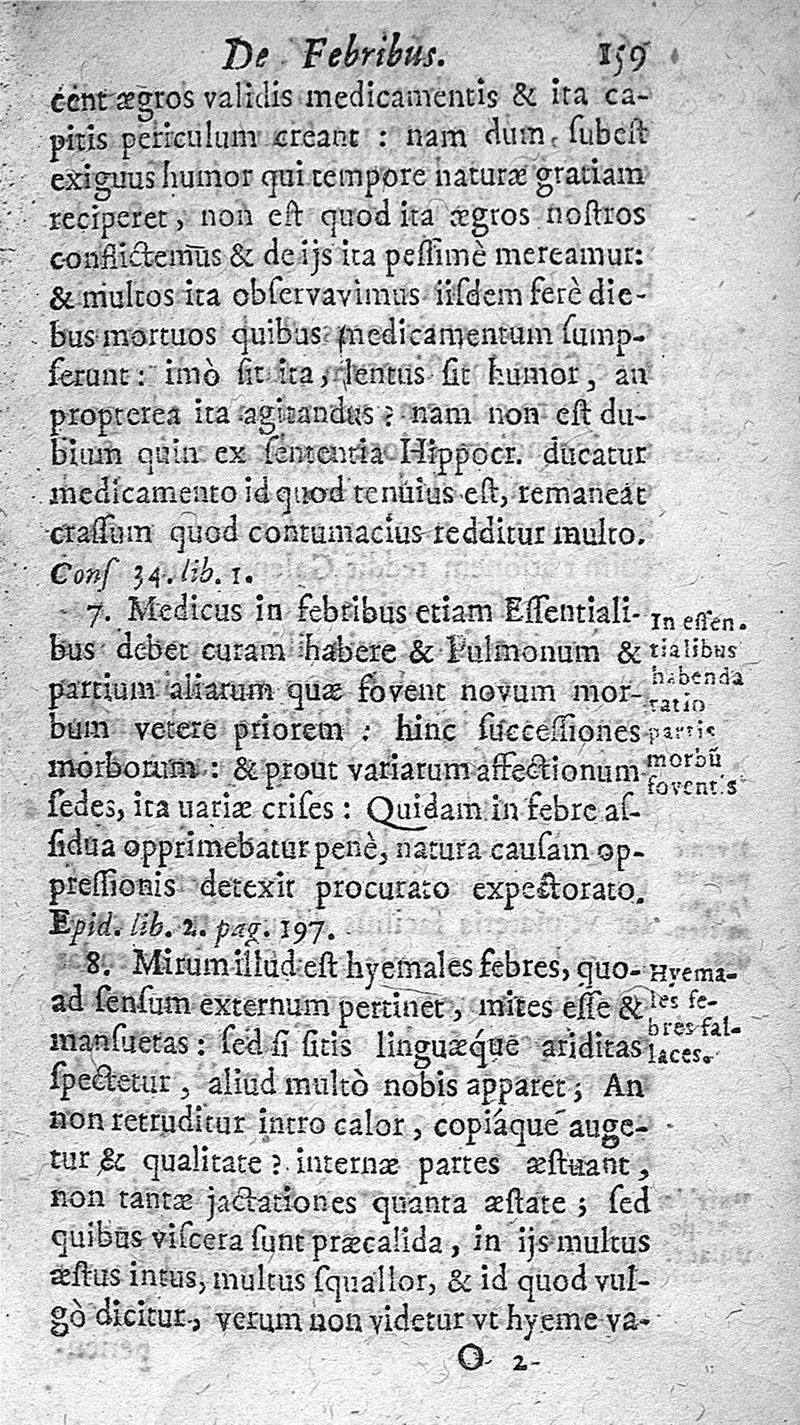 De Febribus. 159
cent ægros validis medicamentis & ita ca-
pitis periculum creant : nam dum subest
exiguus humor qui tempore naturæ gratiam
reciperet, non est quod ita ægros nostros
conflictemus & de ijs ita pessimè mereamur:
& multos ita observavimus iisdem ferè die-
bus mortuos quibus medicamentum sump-
serunt: imò sit ita, lentus sit humor, an
propterea ita agitandus ? nam non est du-
bium quin ex sententia Hippocr. ducatur
medicamento id quod tenuius est, remaneat
crassum quod contumacius redditur multo.
Cons 34. lib. 1.
7. Medicus in febribus etiam Essentiali-
bus debet curam habere & Pulmonum &
partium aliarum quæ fovent novum mor-
bum vetere priorem : hinc successiones
morborum : & prout variarum affectionum
sedes, ita uariæ crises : Quidam in febre as-
sidua opprimebatur penè, natura causam op-
pressionis detexit procurato expectorato.
Epid. lib. 2. pag. 197.
In essen-
tialibus
habenda
ratio
partis
morbū
foventis
8. Mirum illud est hyemales febres, quo-
ad sensum externum pertinet, mites esse &
mansuetas : sed si sitis linguæque ariditas
spectetur, aliud multò nobis apparet; An
non retruditur intro calor, copiáque auge-
tur & qualitate ? internæ partes æstuant,
non tantæ jactationes quanta æstate ; sed
quibus viscera sunt præcalida, in ijs multus
æstus intus, multus squallor, & id quod vul-
gò dicitur, verum non videtur vt hyeme va-
Hyema-
les fe-
bres fal-
laces.
O 2